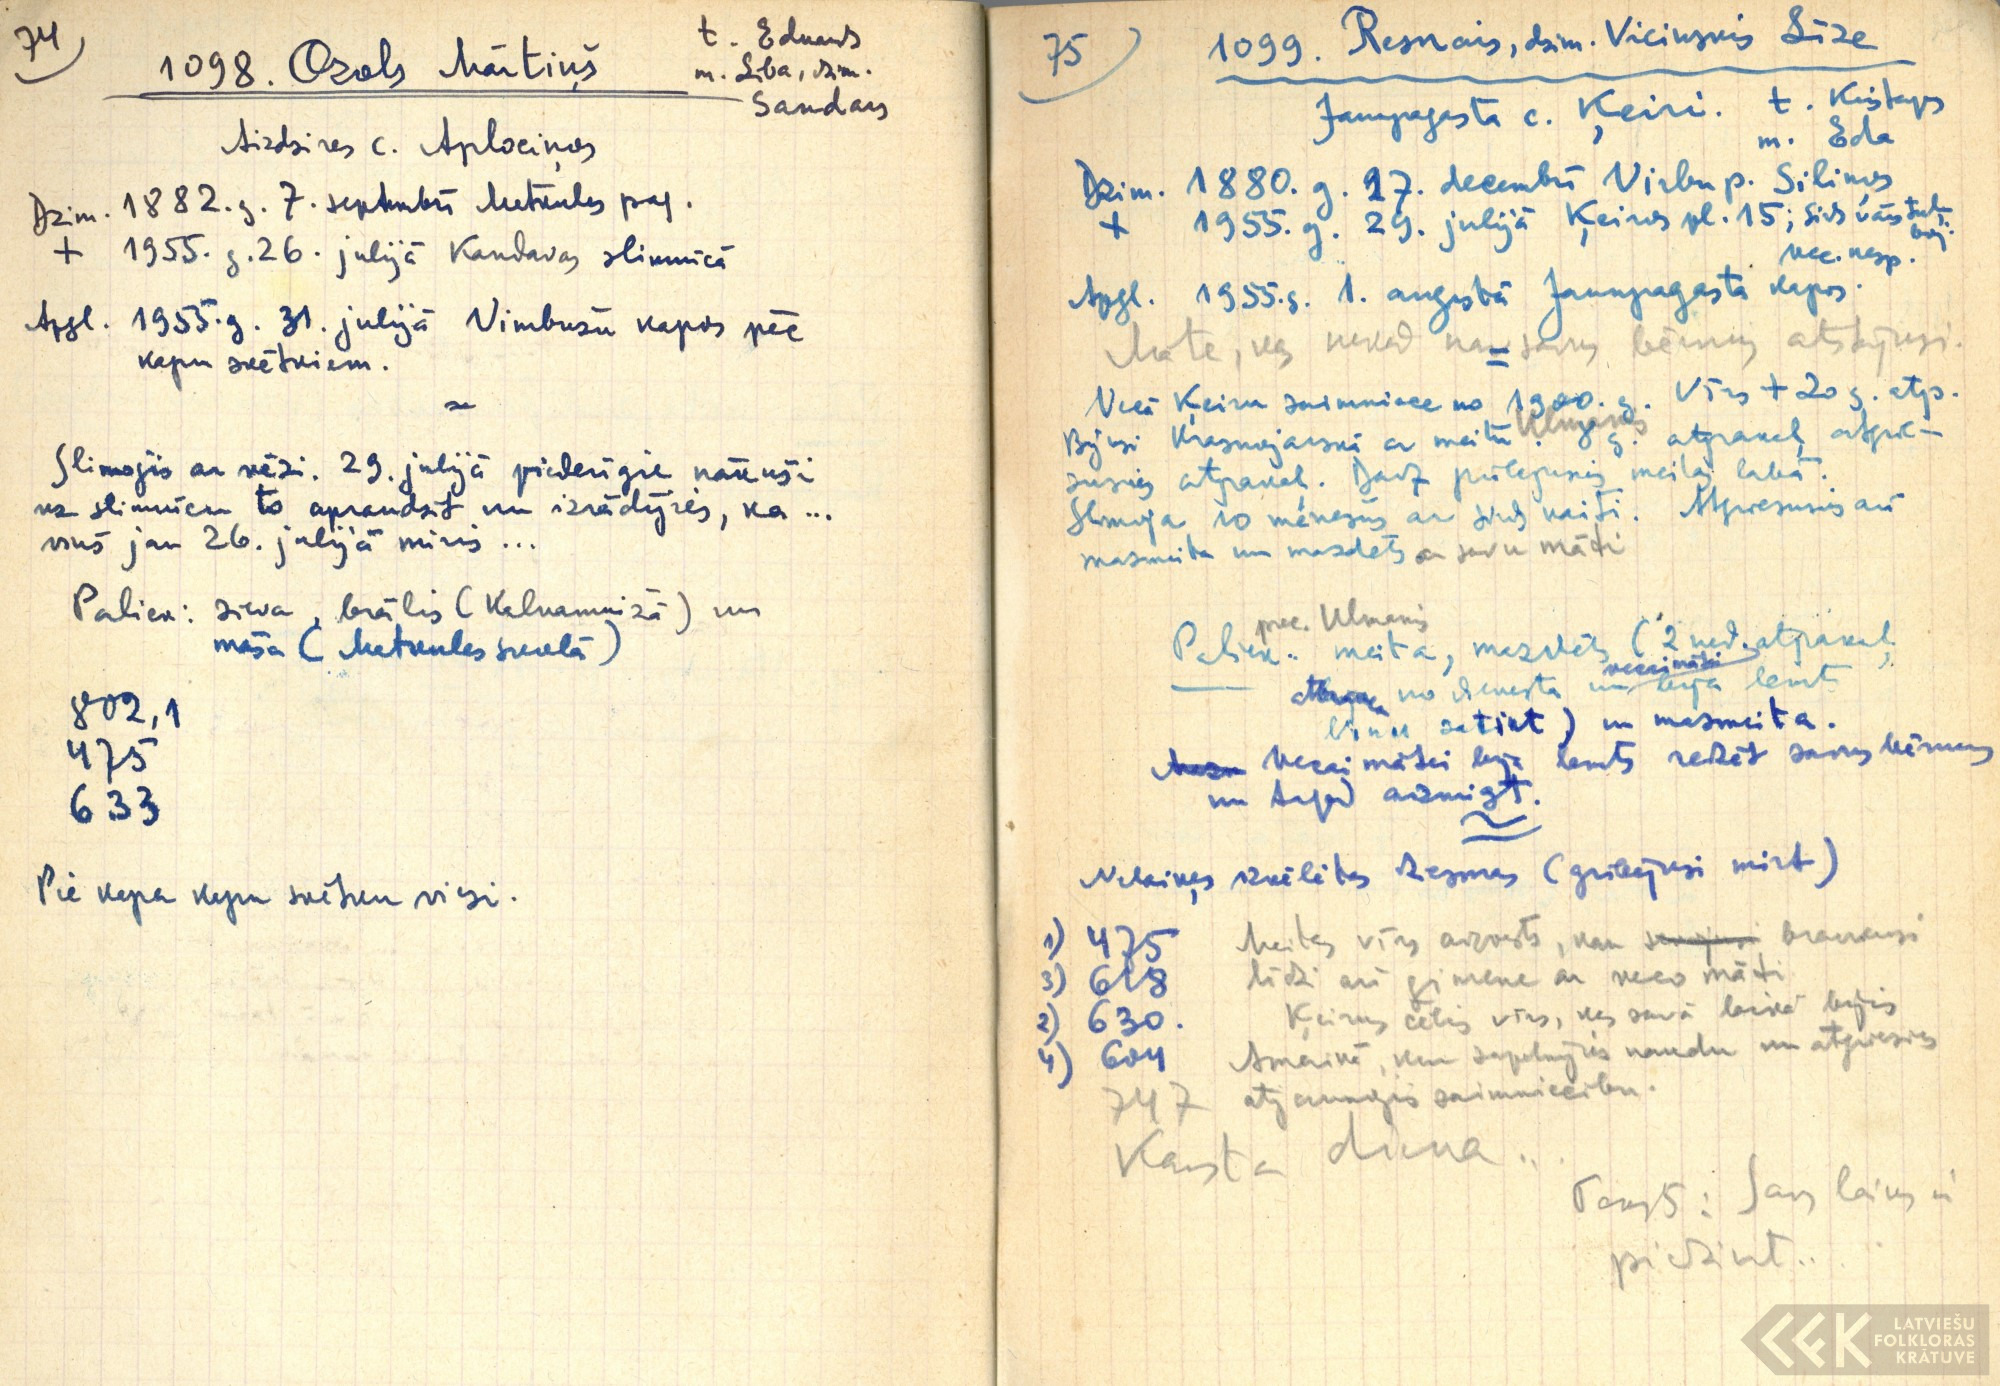 74)
1098. Ozols Mārtiņš
t. Eduards
m. Lība, dzim.
Sandars
Aizdzires c. Aplociņos
Dzim. 1882. g. 7. septembrī Matkules pag.
+ 1955. g. 26. julijā Kandavas slimnīcā
Apgl. 1955. g. 31. julijā Vimbušu kapos pēc
kapu svētkiem.
Slimojis ar vēzi. 29. julijā piederīgie nākuši
uz slimnīcu to apraudzīt un izrādījies, ka ...
viņš jau 26. julijā miris ...
Paliek: sieva, brālis (Kalnamuižā) un
māsa (Matkules skolā)
802,1
475
633
Pie kapa kapu svētku viesi.
75)
1099. Resnais, dzim. Vicinskis Līze
Jaunpagasta c. Ķeiri.
t. Kristaps
m. Eda
Dzim. 1880. g. 27. decembrī Virbu p. Siliņos
+ 1955. g. 29. julijā Ķeiros pl. 15; sirds vārst.
vec. nesp.
Apgl. 1955. g. 1. augustā Jaunpagasta kapos.
Māte, kas nekad nav savus bērnus atstājusi.
Vecā Ķeiru saimniece no 1900. g. Vīrs + 20 g. atp.
Bijusi Krasnojarskā ar meitu Ulmanis. 8 g. atpakaļ atgrie-
zusies atpakaļ. Daudz pūlējusies meitas labā.
Slimoja 10 mēnešus ar sirds kaiti. Atgriezusies arī
mazmeita un mazdēls ar savu māti
prec. Ulmanis
Paliek: meita, mazdēls (2 ned. atpakaļ
vecaimātei
atbrauca no dienesta un bija lemts
satikt) un mazmeita.
Vecai mātei bija lemts redzēt savus bērnus
un tagad aizmigt.
Nelaiķes izvēlētas dziesmas (gribējusi mirt)
1) 475
3) 618
2) 630.
4) 604
747
Meitas vīrs aizvests, kam braukusi
līdzi arī ģimene ar veco māti
Ķeirus cēlis vīrs, kas savā laikā bijis
Amerikā, kur sapelnījis naudu un atgriezies
atjaunojis saimniecību.
Karsta diena ...
Teksts: Savs laiks ir
piedzimt...
LATVIEŠU
FOLKLORAS
KRĀTUVE